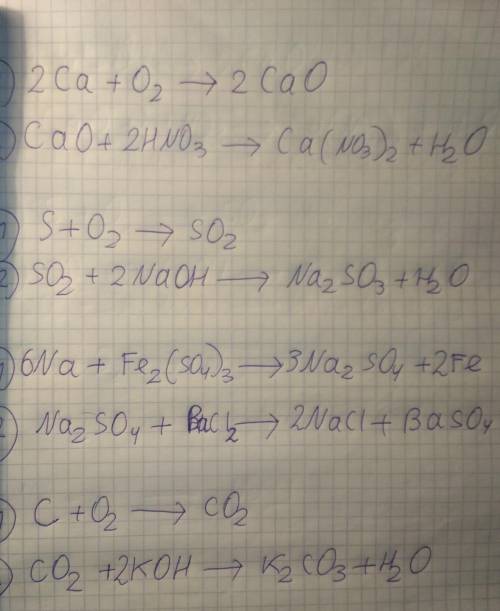 1) 2Ca + O2 → 2CaO
2) CaO + 2HNO3 → Ca(NO3)2 + H2O
1) S + O2 → SO2
2) SO2 + 2NaOH → Na2SO3 + H2O
1) 6Na + Fe2(SO4)3 → 3Na2SO4 + 2Fe
2) Na2SO4 + BaCl2 → 2NaCl + BaSO4
1) C + O2 → CO2
2) CO2 + 2KOH → K2CO3 + H2O